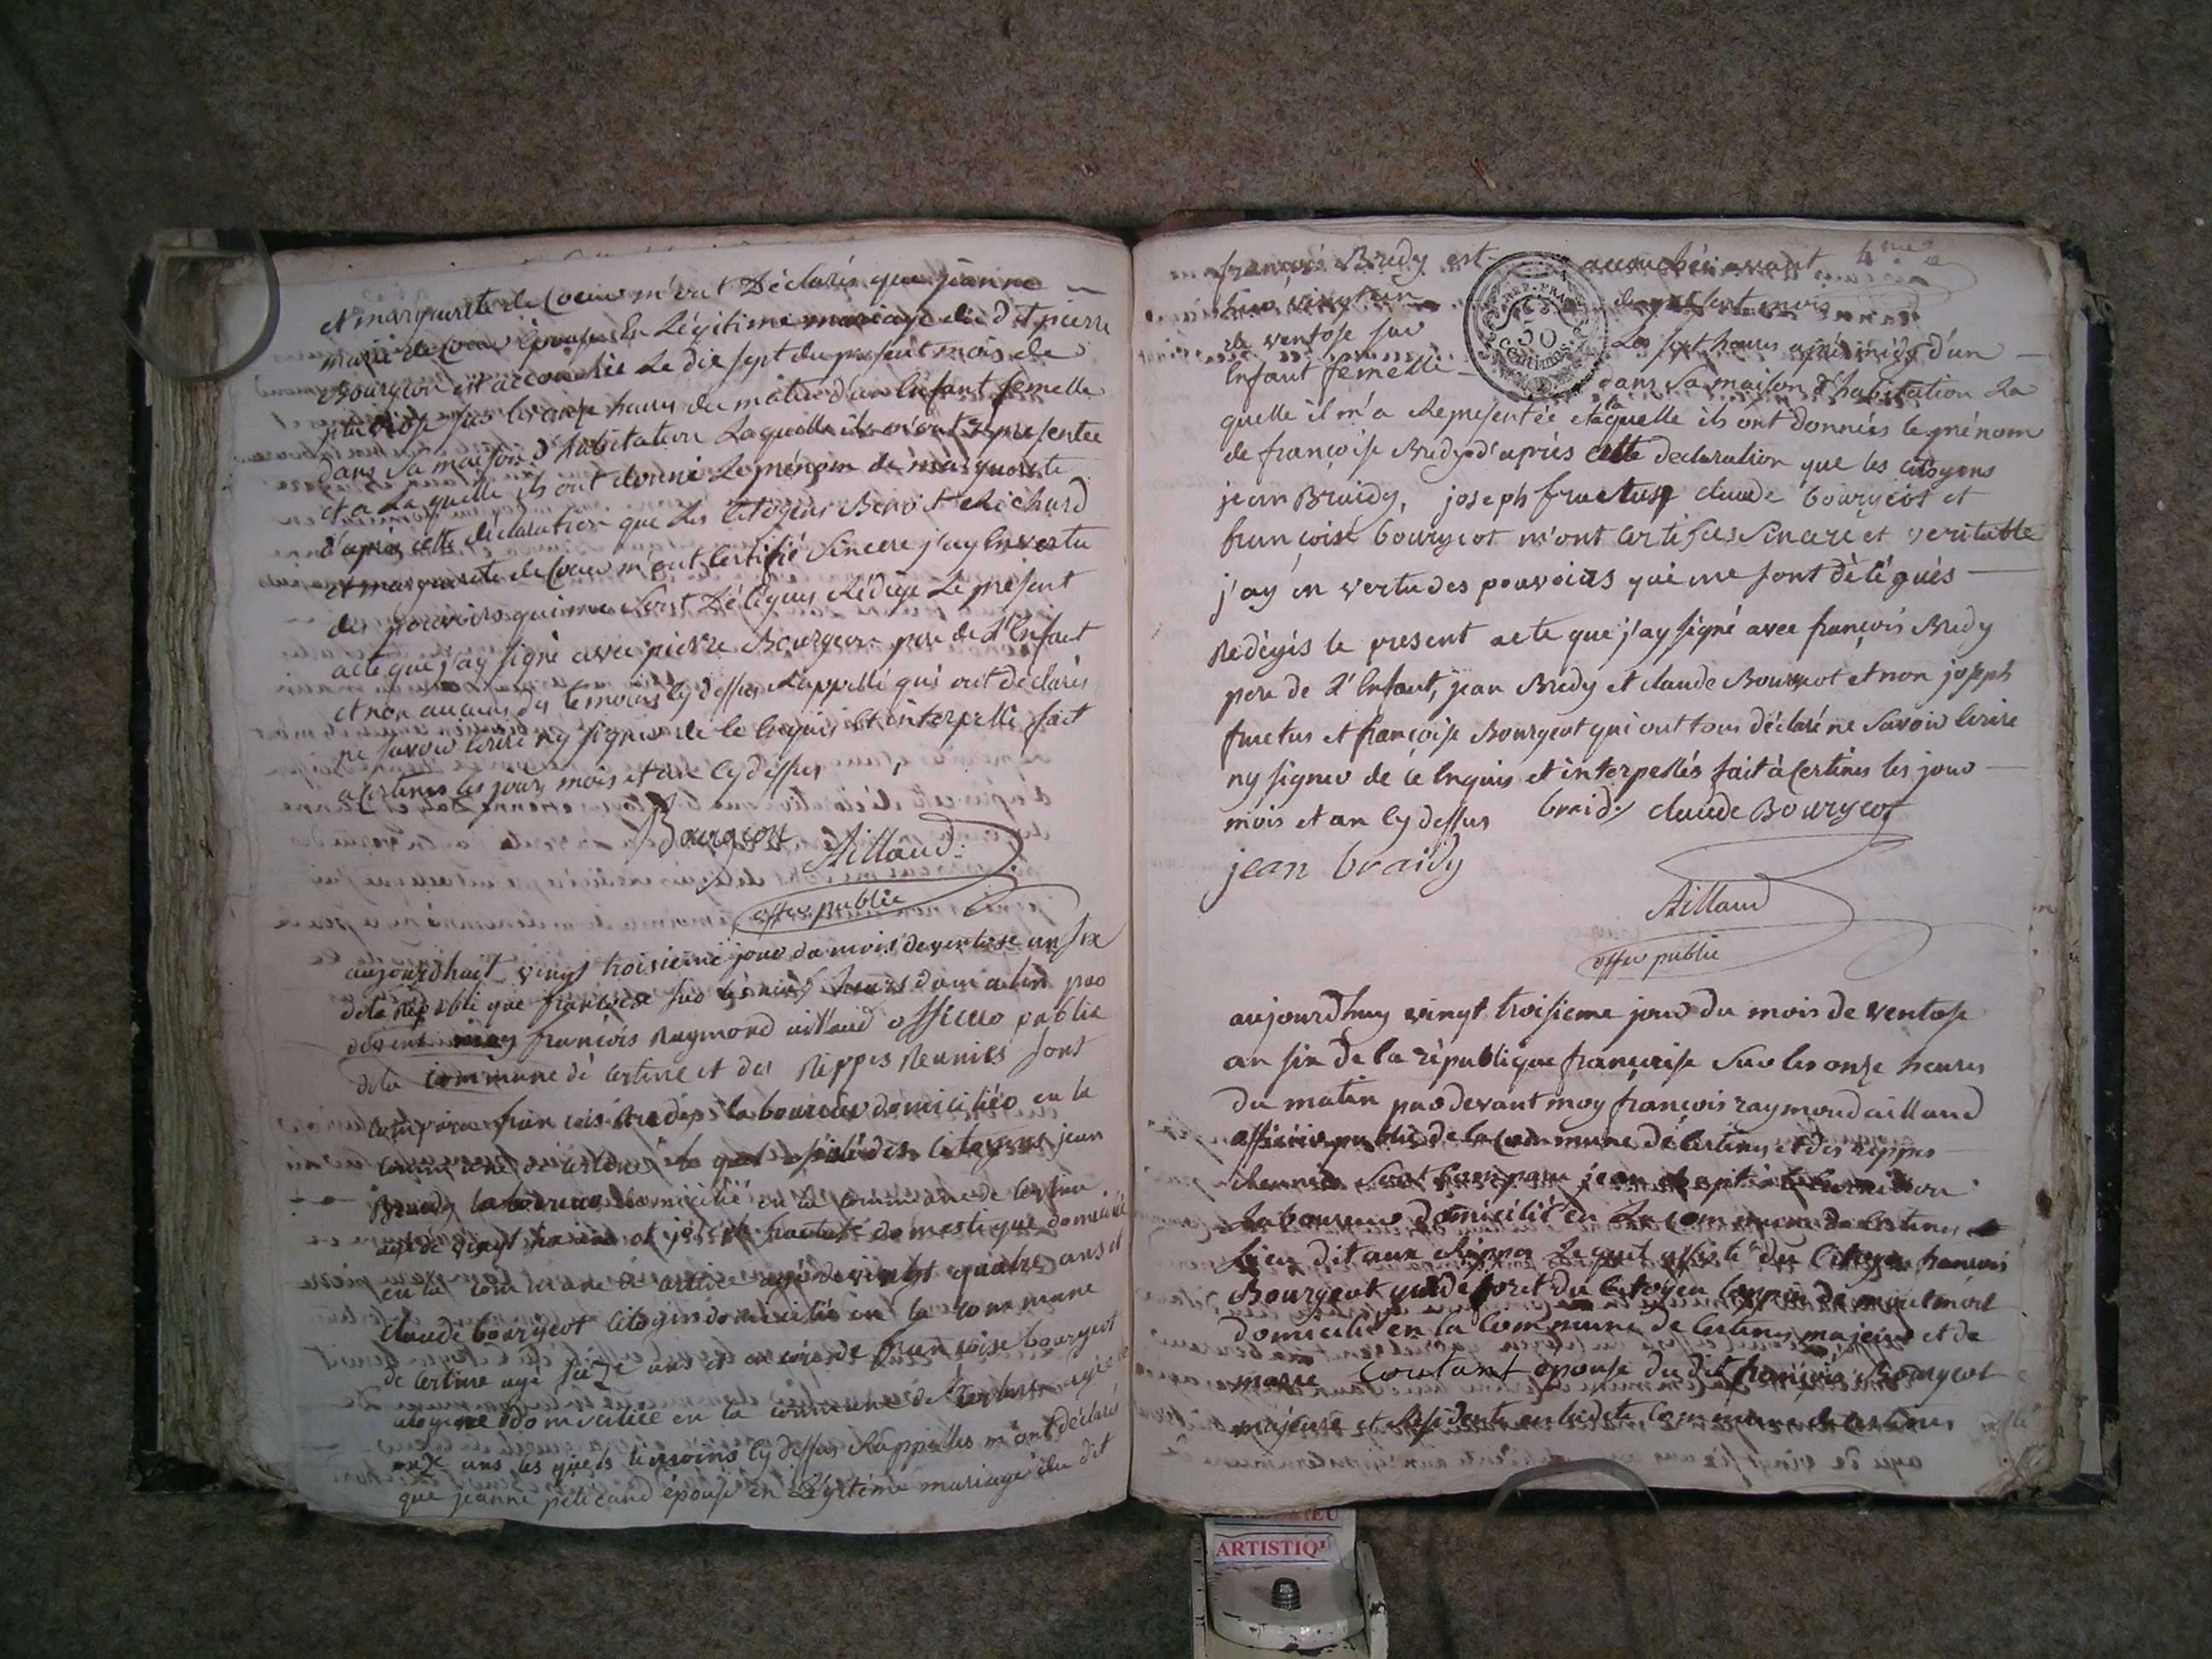 et marguerite le Coeur m'ont Déclarés que jeanne
marie le Coeur épouse En Légitime mariage du dit pierre
Bourgeon est accouchée Le dix sept du present mois de
pluviose sur les onze heures du matin d'un Enfant femelle
dans Sa maison d'habitation Laquelle ils m'ont representée
et a Laquelle ils ont donné Le prénom de marguerite
d'apres cette déclaration que Les Citoyens Benoit Richard
et marguerite le Coeur m'ont Certifié Sincere j'ay En vertu
des pouvoirs qui me Sont Délégués Rédigé Le present
acte que j'ay signé avec pierre Bourgeon pere de L'Enfant
et non aucuns des temoins Cy dessus Rappellé qui ont déclarés
ne savoir Ecrire ny signer de ce Enquis Et interpellé fait
a Certines les jour, mois et an Cy dessus
Bourgeon Aillaud
offer public
aujourdhuit vingt troisieme jour du mois de ventose an six
de la république francoise sur les neuf heures du matin par
devent moy francois Raymond aillaud officier public
de la commune de Certine et des Rippes Reunies sont
comparu francois Bredy laboureur domicilié en la
commune de Certine le quel assisté des citoyens jean
Braidy laboureur domicilié en la commune de Certine
agé de vingt ans et joseph fructus domestique domicilié
en la commune de certine agé de vingt quatre ans et
claude bourgeot citogin domicilié en la commune
de Certine agé seize ans et encore de francoise bourgeot
citogine domiciliée en la commune de Certine agée de
onze ans les quels temoins Cy dessus Rappelles m'ont déclarés
que jeanne pelicand épouse en Légitime mariage du dit
françois Bredy est accouchée avant
hier vingt un du present mois
de ventose sur Les sept heures après midy d'un
Enfant femelle dans Sa maison d'habitation La
quelle il m'a Representée et a la quelle ils ont donnés le prénom
de françoise Bredy d'après cette declaration que les citoyens
jean Braidy, joseph fructus claude bourgeot et
françoise bourgeot m'ont certifies Sincere et veritable
j'ay en vertu des pouvoirs qui me sont délégués
Redégis le present acte que j'ay signé avec françois Bredy
pere de L'Enfant, jean Bredy et claude Bourgeot et non joseph
fructus et françoise Bourgeot qui ont tous déclaré ne Savoir Ecrire
ny signer de ce Enquis et interpellés fait à Certines les jour
mois et an Cy dessus braidy claude Bourgeot
jean braidy
Aillaud
offer public
aujourdhuy vingt troisieme jour du mois de ventose
an six de la république françoise Sur les onze heures
du matin par devant moy françois raymond aillaud
officier public de la commune de Certines et des rippes
Reunies Sont comparu jean
Laboureur domicilié en La commune de Certines
Lieu dit aux Rippes Lequel assisté du Citoyen françois
Bourgeot garde foret du Citoyen de montmort
domicilié en la Commune de Certines majeur et de
marie Coutant épouse du dit françois Bourgeot
majeure et Résidente en ladite Commune de Certines
REP. FRA
50
Centimes
ARTISTIQ